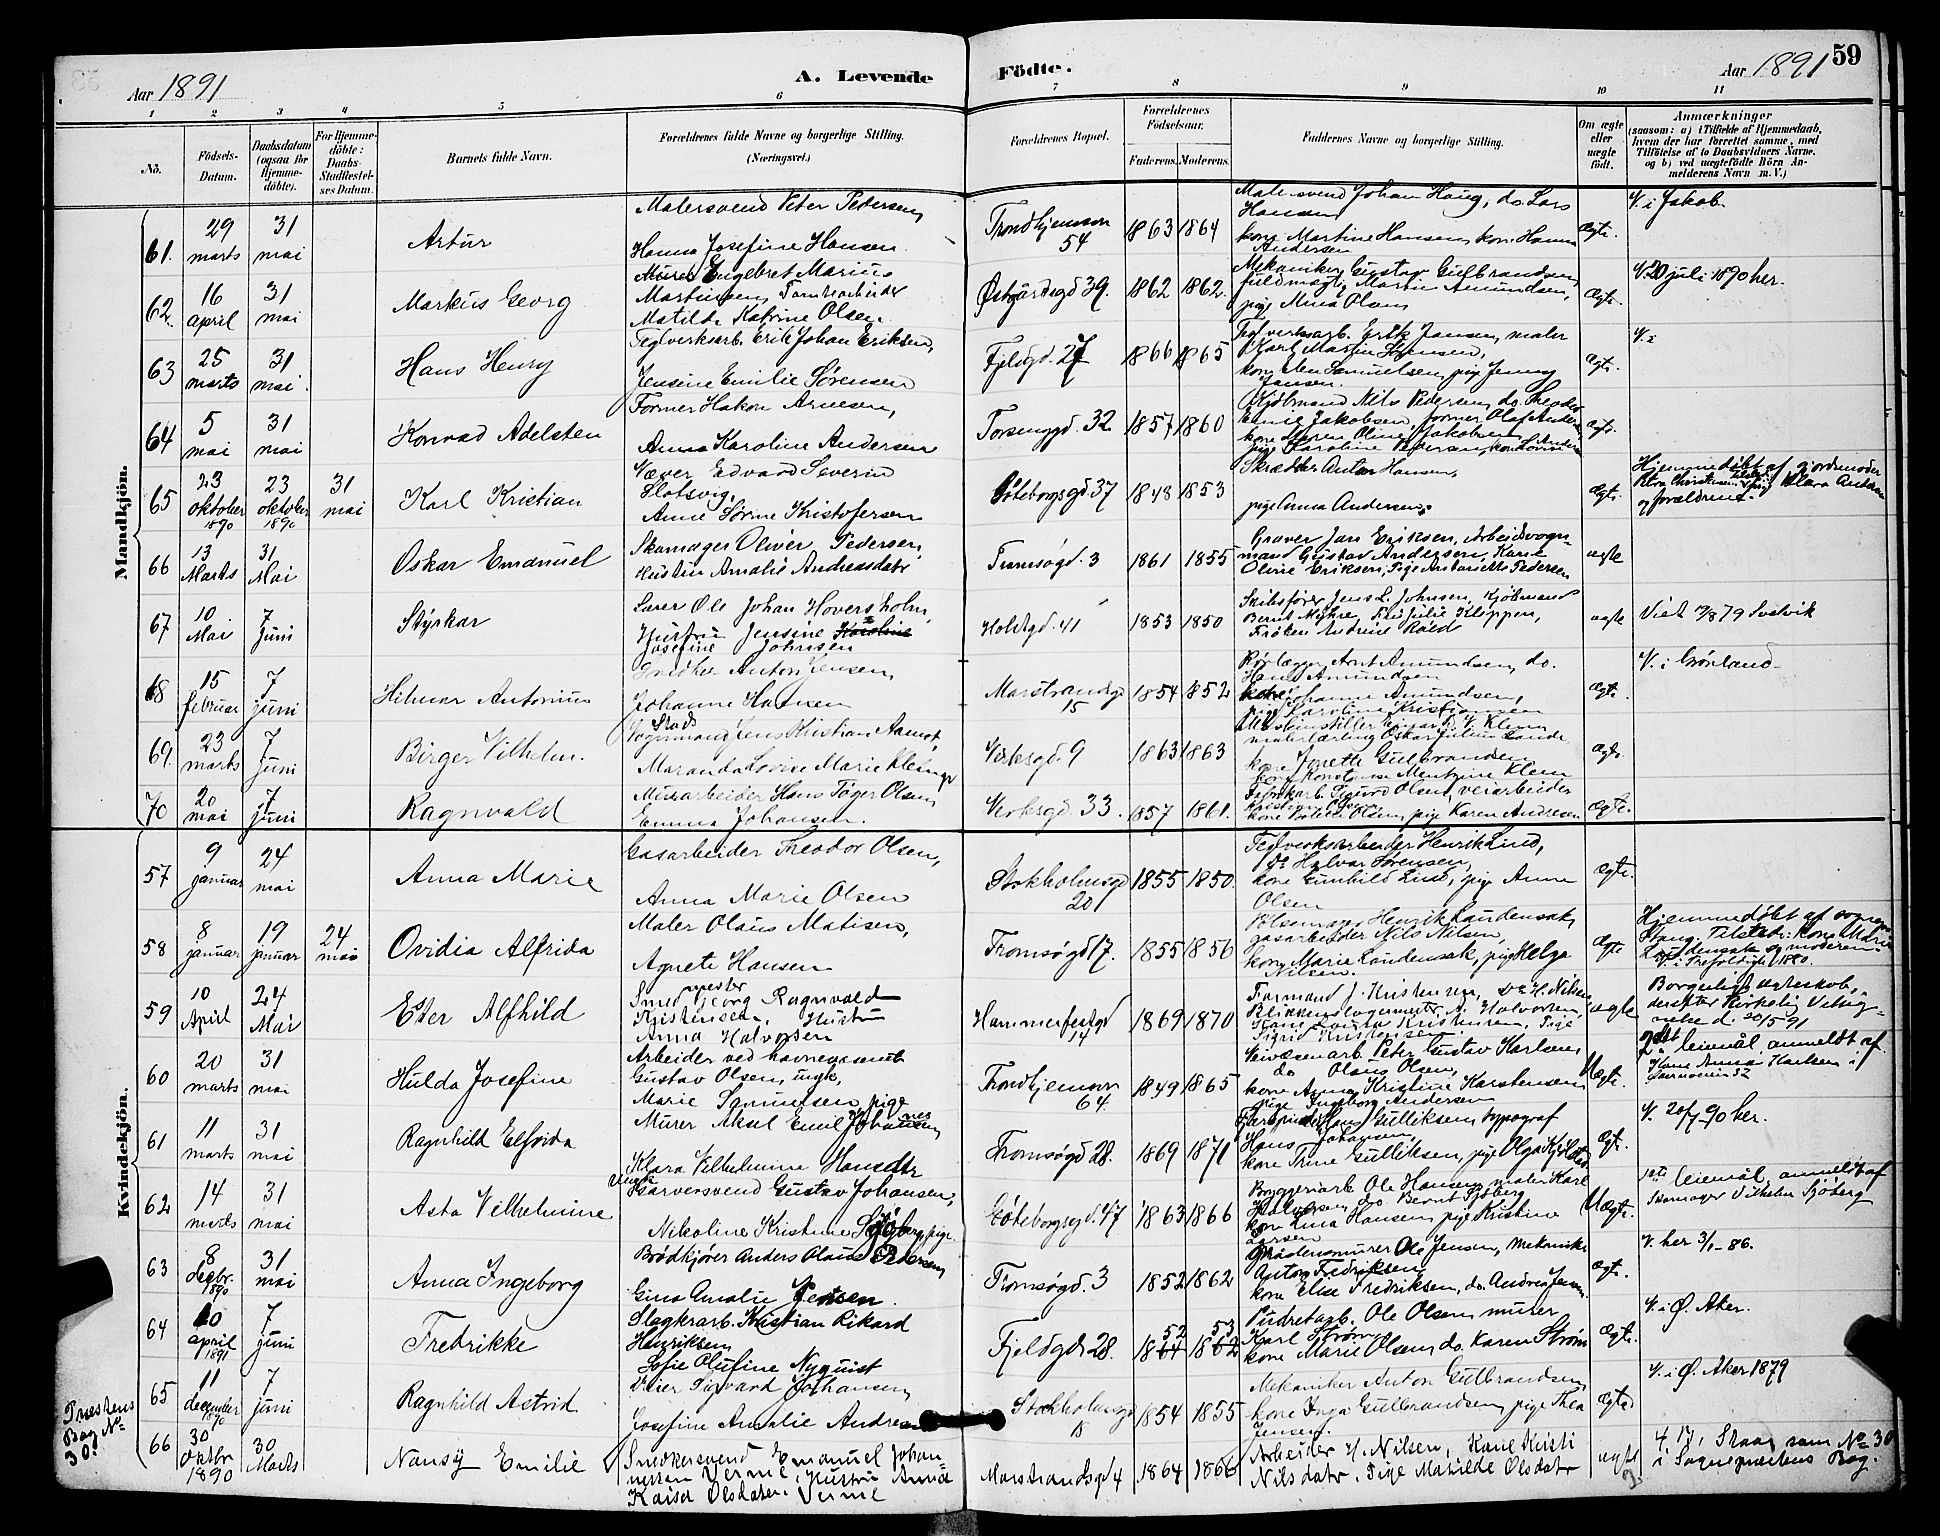 Aar 1891 A. Levende Födte. Aar 1891 59
1 2 3 4 5 6 7 8 9 10 11
No. Födsels-Datum. Daabsdatum (ogsaa for Hjemme-döbte). For Hjemme-döbte: Daabs-Stadfæstel-ses Datum. Barnets fulde Navn. Forældrenes fulde Navne og borgerlige Stilling. (Næringsvei.) Forældrenes Bopæl. Forældrenes Födselsaar. Faderens. Moderens. Faddernes Navne og borgerlige Stilling. Om ægte eller uægte födt. Anmærkninger (saasom: a) i Tilfælde af Hjemmedaab, hvem der har forrettet samme, med Tilföielse af to Daabsvidners Navne, og b) ved uægtefödte Börn Anmelderens Navn m. V.)
Mandkjön.
61. 29 marts 31 mai Artur Malersvend Peter Pedersen, Hanna Josefine Hansen Trondhjemsvn 54 1863 1864 Malersvend Johan Haug, do Lars Hansen kone Martine Hansen, kone Hanna Andersen Ægte. V. i Jakob.
62. 16 april 31 mai Markus Georg Murer Engebret Marius Martinsen, Matilde Katrine Olsen. Østgaardsgd 39. 1862 1862. Mekaniker Gustav Gulbrandsen, fuldmægt. Martin Amundsen, pige Mina Olsen Ægte. V. 20 juli 1890 her.
63 25 marts 31 mai. Hans Henry Teglverksarb. Erik Johan Eriksen, Jensine Emilie Sørensen Fjeldgd. 27 1866 1865 Teglverksarb. Erik Jansen, maler Karl Martin Hansen, kone Elen Samuelsen, pige Jenny Jansen. Ægte. V. i
64 5 mai 31 mai Konrad Adelsten Former Hakon Arnesen, Anna Karoline Andersen 32 1857 1860 Kjöbmand Nils Pedersen, do Theodor Jakobsen, former Olaf Andersen kone Maren Oline Jakobsen pige Karoline Pedersen, Ægte.
65 23 oktober 1890 23 oktober 1890 31 mai Karl Kristian Væver Edvard Severin Slotsvig, Anne Sørine Kristofersen Göteborgsgd 37 1848 1853 Skrædder Anton Hansen, pige Anna Andersen. Ægte Hjemmedöbt af gjordemoder og forældrene.
66 13 Marts 31 Mai Oskar Emanuel Skomager Oliver Pedersen, Hustru Amalie Andreasdatr Tromsøgd. 3 1861 1855 Graver Jan Eriksen, Arbeidsvognmand Gustav Andersen, Kone Oline Eriksen, Pige Antoinette Pedersen ægte
67 10 Mai 7 Juni Styrkar Ole Johan Hoversholm, Hustru Jensine Karoline Josefine Johnsen Holstgd. 41 1853 1850 Skibsfører Jens L. Johnsen, Kjöbmand Bernt Myhre, Julie Kloppen, Frøken ægte Viet 79
68 15 februar 7 juni Hilmar Antonius Snedker Anton Jensen, Johanne Hansen Marstrandsgd 15 1854 1852 Rørlægger Arnt Amundsen, do. Hans Amundsen kone Johanne Amundsen, pige Karoline Kristiansen Ægte. V. i Grønland
69. 23 marts 7 juni Birger Vilhelm. Vognmand Jens Kristian Aamot, Maranda Lovise Marie Klem Verksgd. 9 1863 1863 Einar Klem kone Jonette Gulbrandsen Klem Ægte.
70 20 mai 7 juni Ragnvald Murarbeider Hans Töger Olsen, Emma Johansen. Verksgd. 33. 1857 1861. Sigurd Olsen, veiarbeider Kristian Olsen kone Olsen, pige Karen Andresen Ægte.
Kvindekjön.
57 9 januar 24 mai Anna Marie Gasarbeider Theodor Olsen, Anna Marie Olsen Stokholmsgd 20 1855 1850. Teglverksarbeider Henrik Lind, do Halvar Sørensen, kone Gunhild Lind, pige Anna Olsen Ægte.
58 8 januar 19 januar 24 mai Ovidia Alfrida Maler Olaus Matisen, Agnete Hansen Tromsøgd 17. 1855 1856 Henrik Laudensak, gasarbeider Nils Nilsen, kone Marie Laudensak, pige Helga Nilsen. Ægte Hjemmedöbt af sogneprest Stang. Tilstede: kone Marie Laudensak og moderen V. i Trefoldigh. 1880.
59 10 April 24 Mai Ester Alfhild Smedmester Georg Ragnvald Kristensen, Hustru Anna Halvorsen Hammerfestgd 14 1869 1870 Formand J. Kristensen, Do H. Nilsen, Blikkenslagermestr. A. Halvorsen, Kone Lovise Kristensen, Pige Sigrid Kristensen ægte Borgerligt ægteskab, derefter Kirkelig Velsignelse d. 20/5 91
60 20 marts 31 mai Hulda Josefine Arbeider ved havnevæsnet Gustav Olsen, ungk, Marie Samuelsen, pige Trondhjemsvn 64 1849 1865 Veivæsenarb. Peter Gustav Karlsen, do Olaus Olsen, kone Anna Kristine Karstensen, pige Ingeborg Andersen Uægte. 2det leiemål anmeldt af Kone Anna Karlsen i
61 11 marts 31 mai Ragnhild Elfrida Murer Aksel Emil Johannesen, Klara Vilhelmine Hansdtr Tromsøgd 28. 1869 1871 Hans Gulliksen, typograf Hans Johansen, kone Trine Gulliksen, pige Olga Ægte. V. 20/7 90 her.
62 14 marts 31 mai Asta Vilhelmine Ungk. Garversvend Gustav Johansen, Nikoline Kristine Sjöberg, pige Göteborgsgd. 47 1863 1866 Bryggeriarb. Ole Hansen, maler Karl Halvorsen do. Bernt Sjöberg kone Lina Hansen, pige Kristine Larsen Uægte. 1ste leiemål, anmeldt af Skomager Vilhelm Sjöberg
63 8 decbr. 1890 31 mai Anna Ingeborg Brödkjörer Anders Olaus Pedersen, Gina Amalie Jensen. Tromsøgd. 3 1852 1862 Ole Jensen, Mekaniker Anton Fredriksen kone Elise Fredriksen, do. Andrea Jensen Ægte. V. her 3/1-86.
64 10 april 1891 7 juni Fredrikke Slagterarb. Kristian Rikard Henriksen, Sofie Olufine Nyquist Fjeldgd. 28. 1864 52 1862 53 Pudretarb. Ole Olsen, murer Karl Strøm kone Marie Olsen, do. Karen Strøm Ægte. V. i Ø. Aker.
65 11 december 1890 7 juni Ragnhild Astrid Sigvard Johansen, Josefine Amalie Andresen Stokholmsgd 18 1854 1855 Mekaniker Anton Gulbrandsen, kone Inga Gulbrandsen, pige Thea Jensen. Ægte V. i Ø. Aker 1879
Præstens Bog No 30.
66 30 Oktbr 1890 30 Marts Nansy Emilie Snedkersvend Emanuel Johannessen Verme, Hustru Anna Kaisa Olsdater Verme Marstrandsgd 4 1864 1866 Arbeider H. Nilsen, Kone Kristi Nilsdatr, Pige Mathilde Olsdatr ægte Staar som No 30 i Sognepræstens Bog.